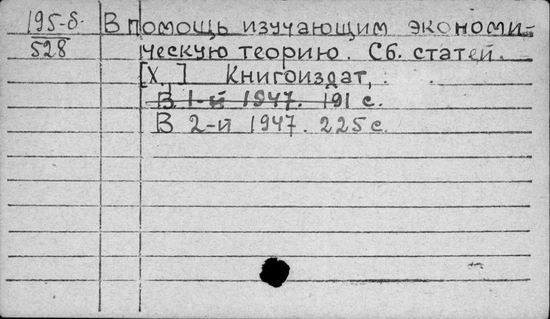 195-б. В помощь изучающим экономи-
528 ческую теорию. Сб. статей.
[Х. ] Книгоиздат,
В 1-й 1947. 191 с.
В 2-й 1947. 225 с.